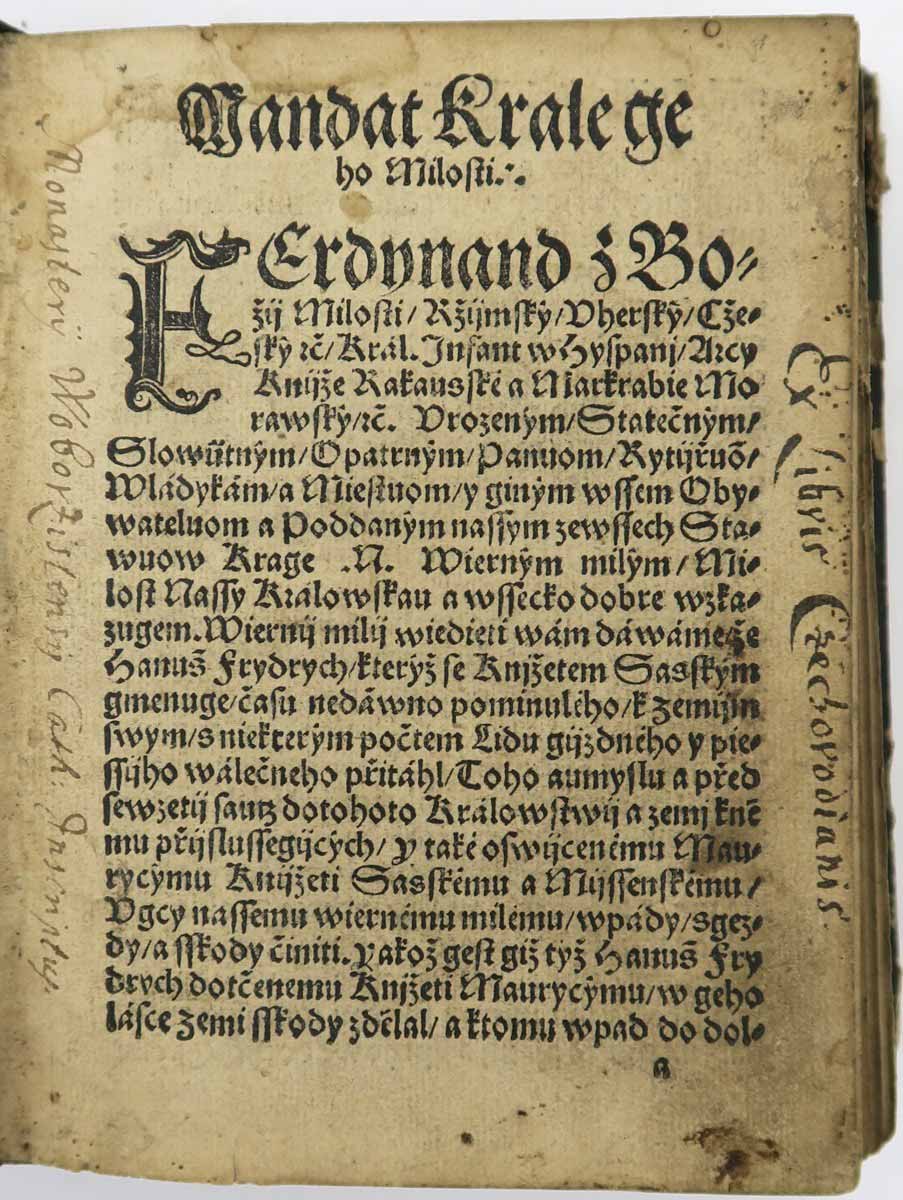 Mandat Krale ge
ho Milosti.·.
FErdynand z Bo-
žij Milosti / Ržijmský / Vherský / Cže-
ský ꝛč / Král. Jnfant w Hyspanj / Arcy
Knijže Rakausské a Markrabie Mo
rawský / ꝛč. Vrozeným / Statečným /
Slowůtným / Opatrným / Panuom / Rytijřuō /
Wládykám / a Miestuom / y giným wssem Oby-
wateluom a Poddaným nassym zewssech Sta-
wuow Krage .N. Wierným milým / Mi-
lost Nassy Kralowskau a wssecko dobre wzka-
zugem. Wiernij milij wiedieti wám dáwáme že
Hanuš Frydrych / kterýž se Knjžetem Sasským
gmenuge / času nedáwno pominulého / k zemijm
swym / s niekterým počtem Lidu gijzdného y pie-
ssijho wálečneho přitáhl / Toho aumyslu a před
sewzetij sautz dotohoto Králowstwij a zemj kně
mu přijslussegijcých / y také oswijcenému Mau-
rycýmu Knijžeti Sasskému a Mijssenskému /
Vgcy nassemu wiernému milému / wpády / sgez-
dy / a sskody činiti. yakož gest giž týž Hanuš Fry
drych dotčenemu Knjžeti Maurycýmu / w geho
lásce zemi sskody zdělal / a ktomu wpad do dol-
a
Monasterij Woborzistensis Cath: Inscriptus
Ex libris Czechorodianis